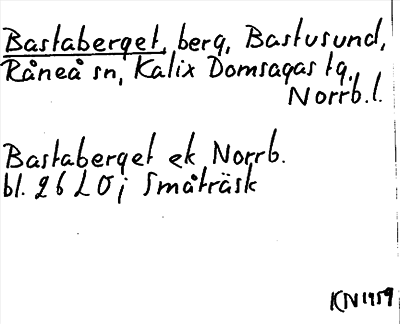 Bastaberget, berg, Bastusund,
Råneå sn, Kalix Domsagas tg.
Norrb.l.
Bastaberget ek Norrb.
bl. 26 L Ö; Småträsk
KN 1959